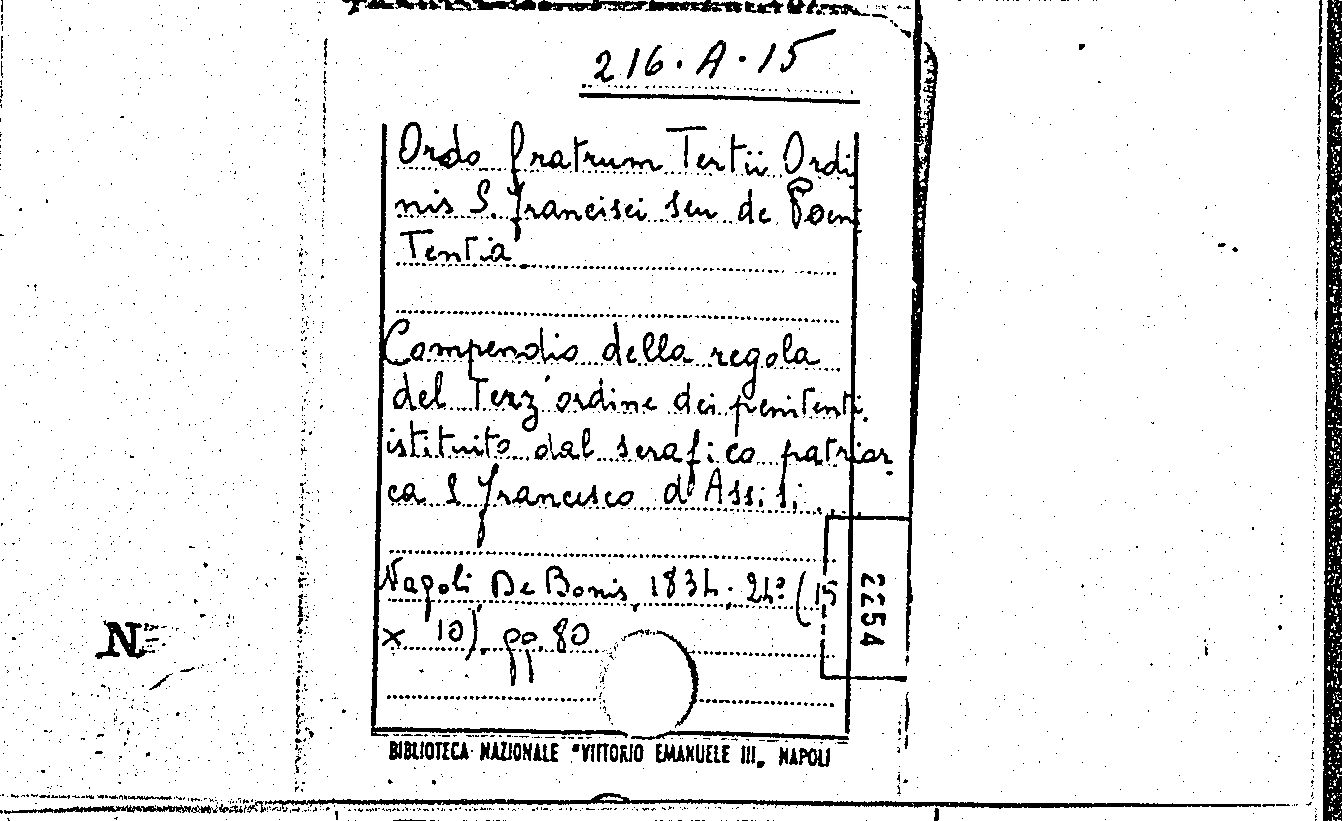 216.A.15
Ordo fratrum Tertii Ordi
nis S. Francisci seu de Poeni
Tentia.
Compendio della regola
del Terz'ordine dei penitenti
istituito dal serafico patriar
ca S Francesco d'Assisi.
Napoli, De Bonis, 1834; 24º (15
x 10), pp. 80
2254
N
BIBLIOTECA NAZIONALE "VITTORIO EMANUELE III„ NAPOLI